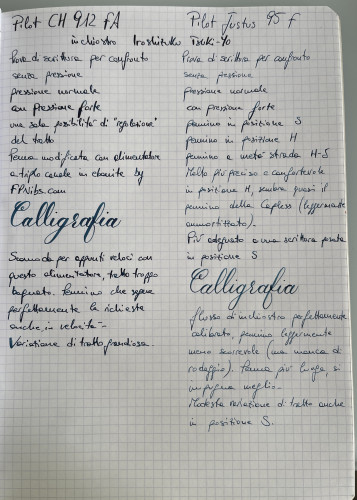 Pilot CH 912 FA
inchiostro Iroshizuku Tsuki-Yo
Prova di scrittura per confronto
senza pressione
pressione normale
con pressione forte
una sola possibilità di "regolazione"
del tratto
Penna modificata con alimentatore
a triplo canale in ebanite by
FPNibs.com
Calligrafia
Scomoda per appunti veloci con
questo alimentatore, tratto troppo
bagnato. Pennino che segue
perfettamente le richieste
anche in velocità -
Variazione di tratto grandiosa.
Pilot Justus 95 F
Prova di scrittura per confronto
senza pressione
pressione normale
con pressione forte
pennino in posizione S
pennino in posizione H
pennino a metà strada H-S
Molto più preciso e confortevole
in posizione H, sembra quasi il
pennino della Capless (leggermente
ammortizzato).
Più adeguato a una scrittura posata
in posizione S
Calligrafia
flusso di inchiostro perfettamente
calibrato, pennino leggermente
meno scorrevole (una manca di
rodaggio). Penna più lunga, si
impugna meglio -
Modesta variazione di tratto anche
in posizione S.